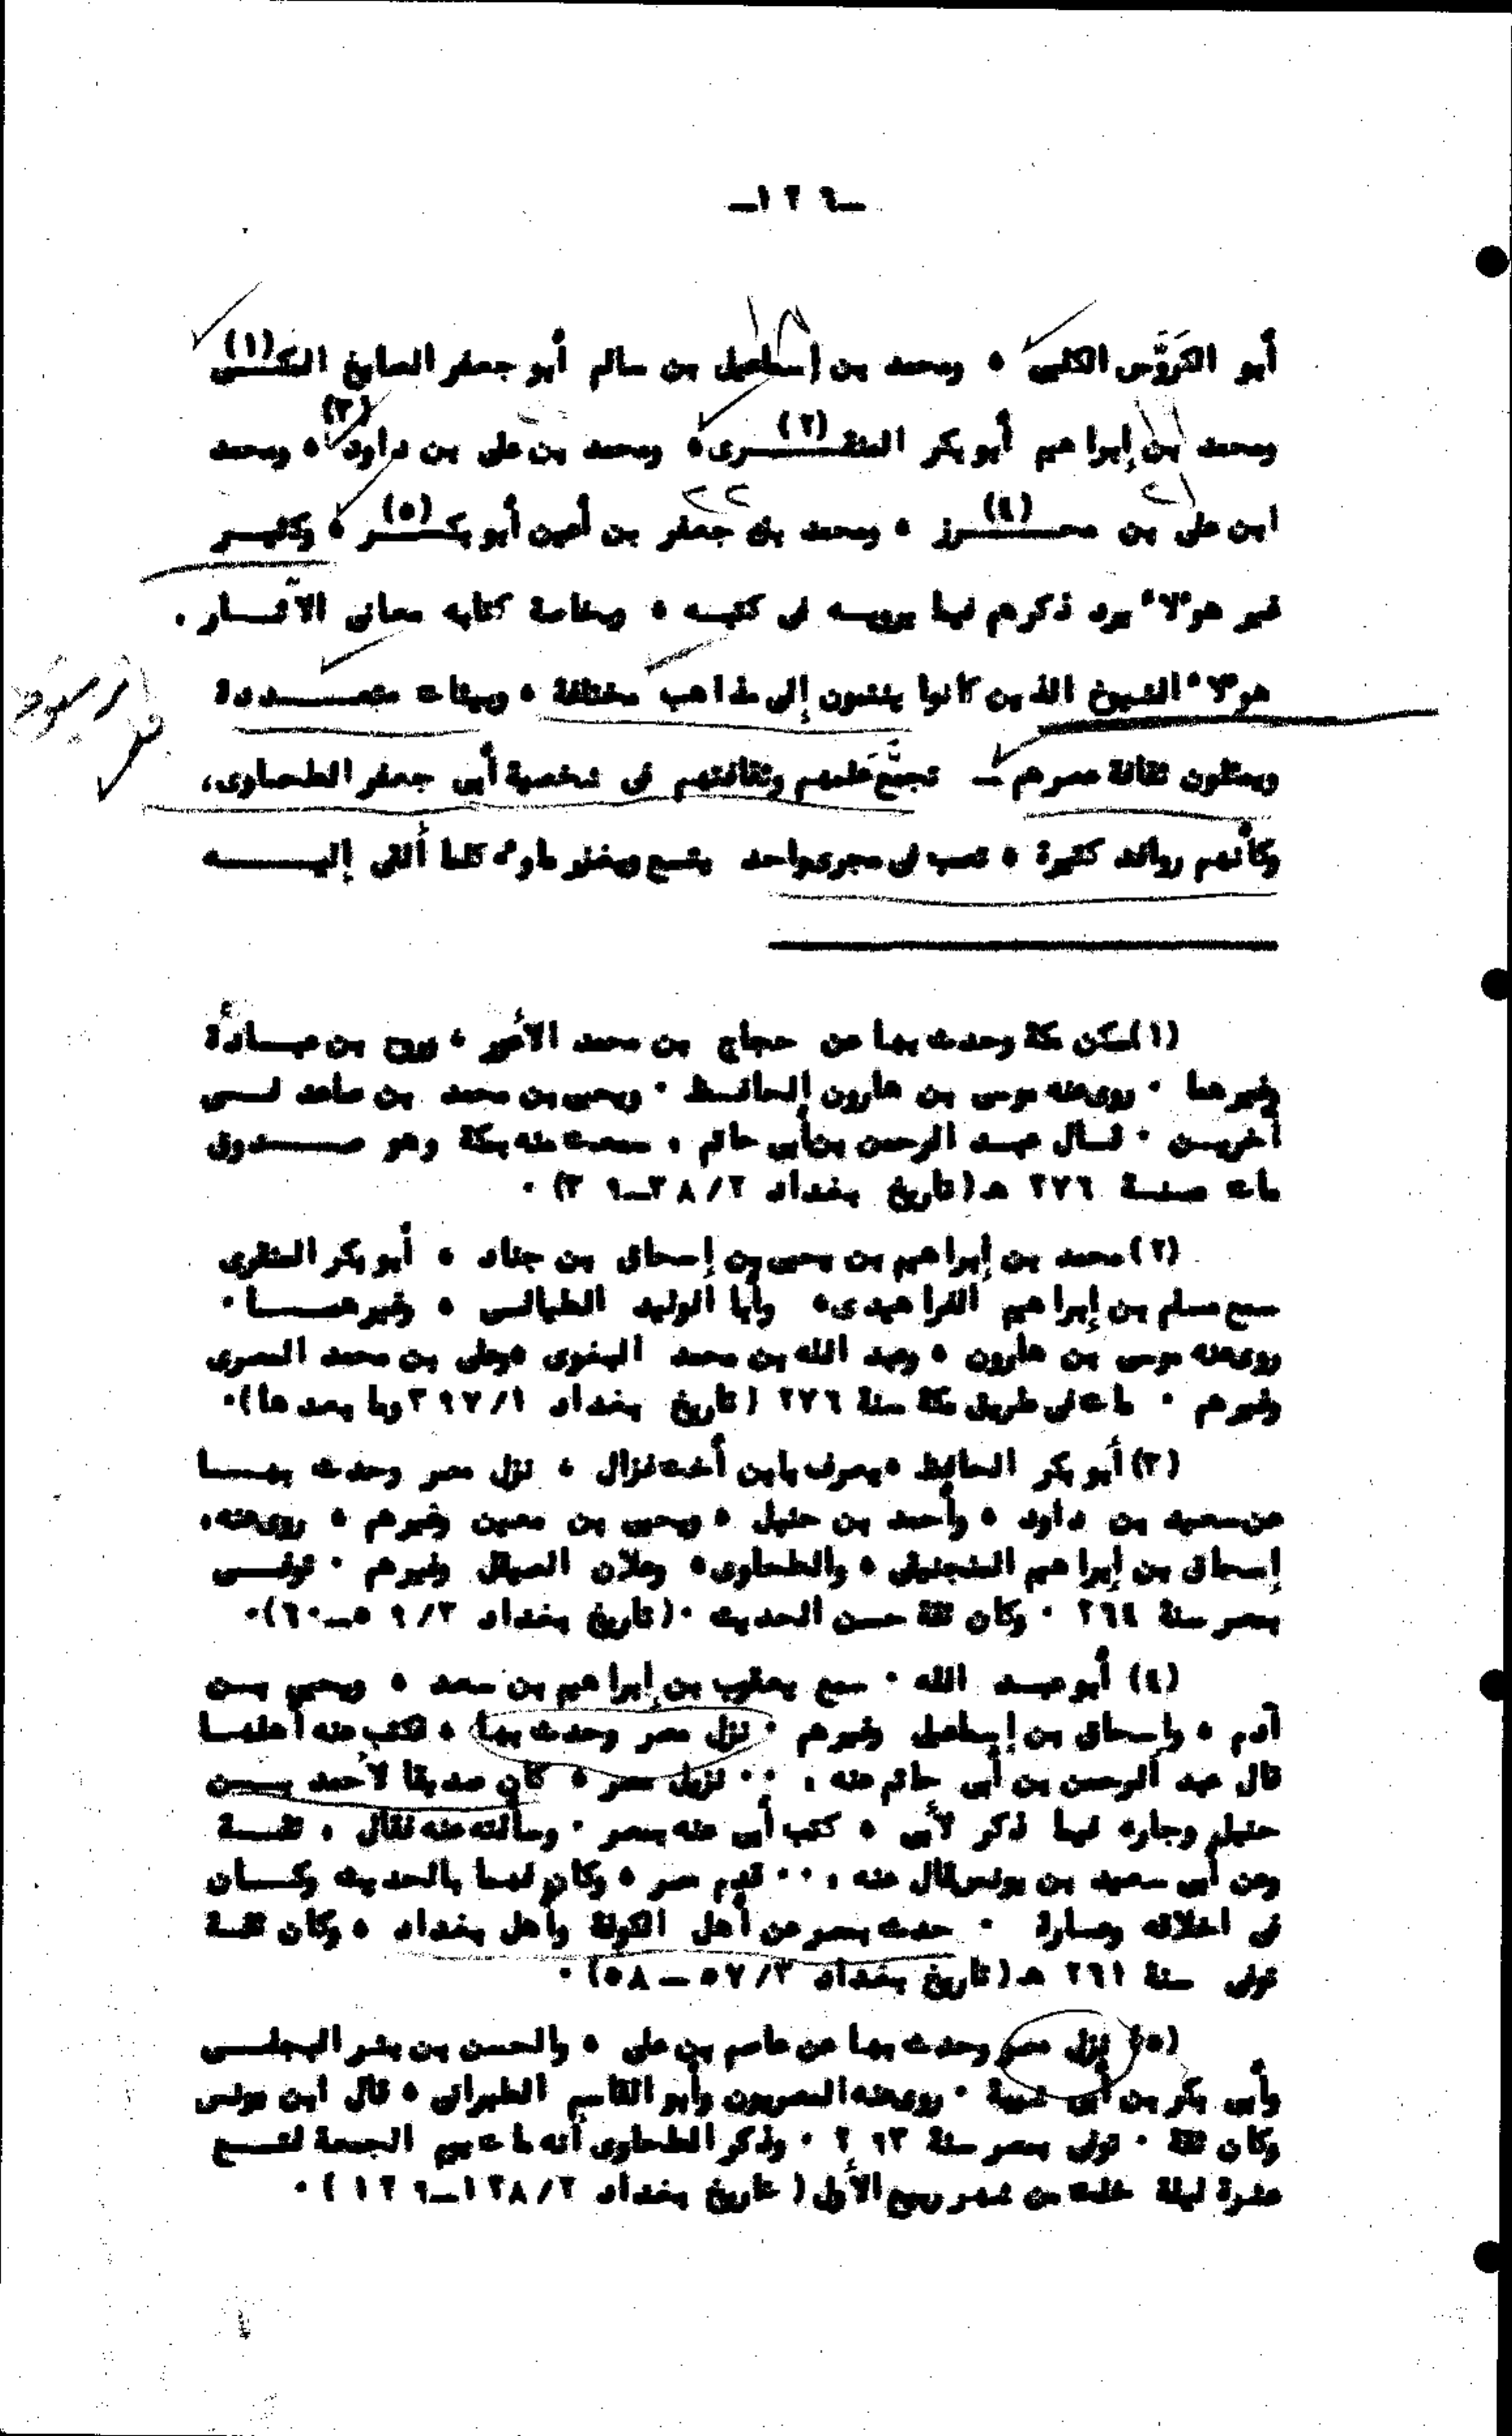 -١٢٦-
أبو الكَرَوَّس الكلبى ، ومحمد بن إسماعيل بن سالم أبو جعفر الصايغ المكـى (١)
ومحمد بن إبراهيم أبو بكر المنقــرى (٢) ، ومحمد بن على بن داود (٣) ، ومحمد
ابن على بن محــرز (٤) ، ومحمد بن جعفر بن أعين أبو بكــر (٥) ، وكثيــر
غير هؤلاء يرد ذكرهم فيما يرويــه فى كتبــه ، وبخاصة كتابه معانى الآثــار .
هؤلاء الشيوخ الذين كانوا ينتمون إلى مذاهب مختلفة ، وبيئات متعــددة
ويمثلون ثقافة عصرهم ـ تجمَّع علمهم وثقافتهم فى شخصية أبى جعفر الطحاوى،
وكأنهم روافد كثيرة ، تصب فى مجرى واحد يتسع ويغزر ماؤه كلما ألقى إليــه
(١) سكن مكة وحدث بها عن حجاج بن محمد الأعور ، وروح بن عبــادة
وغيرهما . روى عنه موسى بن هارون الحافــظ . ويحيى بن محمد بن صاعد فــى
آخريــن . قــال عبــد الرحمن بن أبى حاتم : سمعت منه بمكة وهو صــدوق
مات سنــة ٢٧٦ هـ (تاريخ بغداد ٢/ ٣٨ـ٣٩) .
(٢) محمد بن إبراهيم بن يحيى بن إسحاق بن جناد ، أبو بكر المنقرى
سمع مسلم بن إبراهيم الفراهيدى، وأبا الوليد الطيالسى ، وغيرهمــا .
روى عنه موسى بن هارون ، وعبد الله بن محمد البغوى ، وعلى بن محمد المصرى
وغيرهم . مات فى طريق مكة سنة ٢٧٦ (تاريخ بغداد ١/ ٣٩٧ وما بعدها).
(٣) أبو بكر الحافظ ، يعرف بابن أخت غزال ، نزل مصر وحدث بهــا
عن سعيد بن داود ، وأحمد بن حنبل ، ويحيى بن معين وغيرهم ، روى عنه،
إسحاق بن إبراهيم المنجنيقى ، والطحاوى، وعلان الصيقل وغيرهم . توفــى
بمصر سنة ٢٦٤ . وكان ثقة حسن الحديث .(تاريخ بغداد ٣/ ٥٩ـ٦٠).
(٤) أبو عبــد الله . سمع يعقوب بن إبراهيم بن سعد ، ويحيى بــن
آدم ، واسحاق بن إسماعيل وغيرهم . نزل مصر وحدث بها ، فكتب عنه أهلهــا
قال عبد الرحمن بن أبى حاتم عنه : .. نزيل مصر ، كان صديقا لأحمد بــن
حنبل وجاره فيما ذكر لأبى ، كتب أبى عنه بمصر . وسألته عنه فقال : ثقــة
وعن أبى سعيد بن يونس قال عنه : .. قدم مصر ، وكان فهما بالحديث وكــان
فى اخلاقه وعسارة . حدث بمصر عن أهل الكوفة وأهل بغداد ، وكان ثقــة
توفى سنة ٢٦١ هـ (تاريخ بغداد ٣/ ٥٧ ـ ٥٨) .
(٥) نزل مصر وحدث بها عن عاصم بن على ، والحسن بن بشر البجلــى
وأبى بكر بن أبى شيبة . روى عنه المصريون وأبو القاسم الطبرانى ، قال ابن يونس
وكان ثقة . توفى بمصر سنة ٢٩٣ . وذكر الطحاوى أنه مات يوم الجمعة لتســع
عشرة ليلة خلت من شهر ربيع الأول (تاريخ بغداد ٢/ ١٢٨ـ١٢٩) .